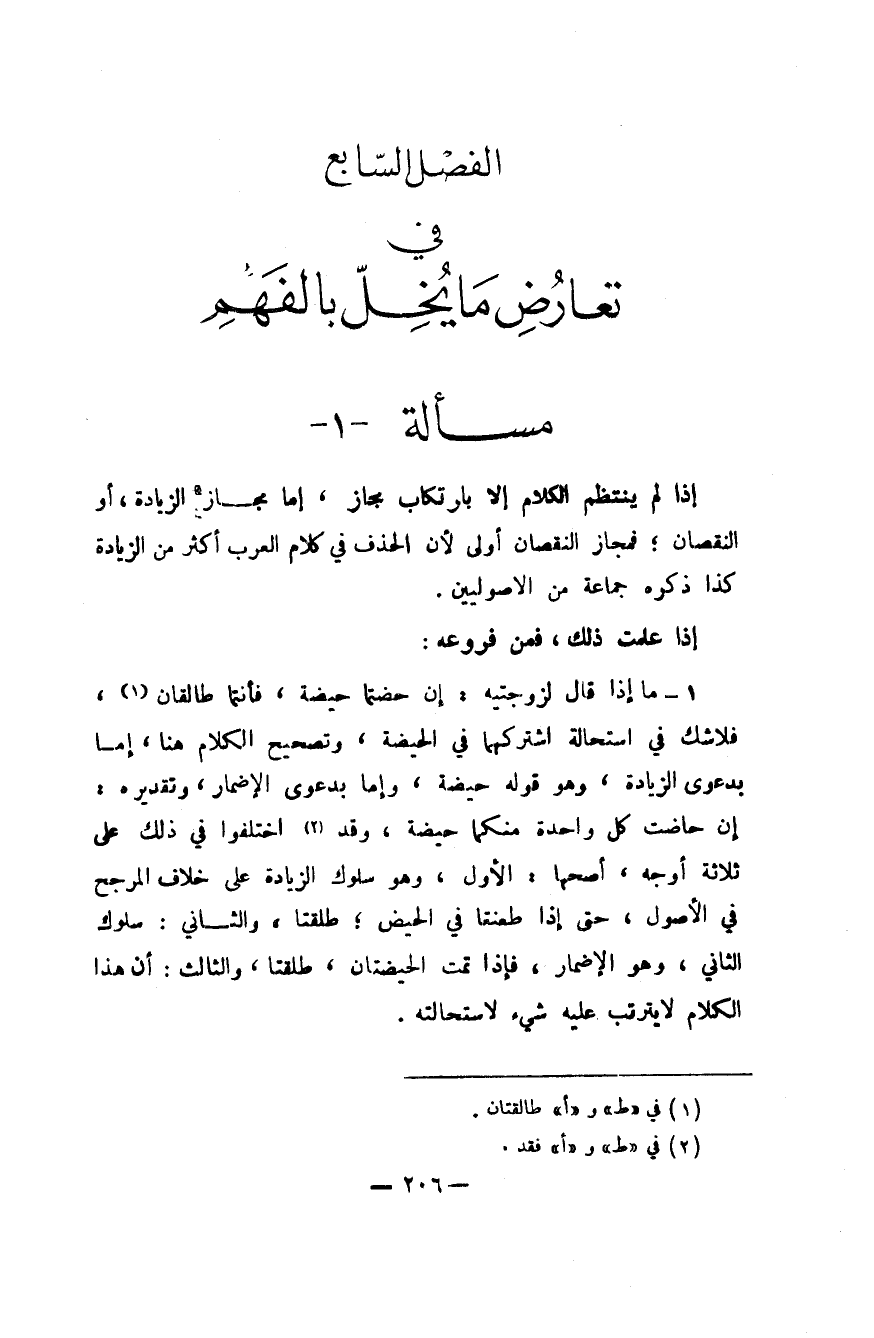 الفصل السابع
في
تعارُضِ مَا يُخِلّ بالفَهْمِ
مسألة -١-
إذا لم ينتظم الكلام إلا بارتكاب مجاز ، إما مجاز الزيادة ، أو
النقصان ؛ فمجاز النقصان أولى لأن الحذف في كلام العرب أكثر من الزيادة
كذا ذكره جماعة من الاصوليين .
إذا علمت ذلك ، فمن فروعه :
١ – ما إذا قال لزوجتيه : إن حضتما حيضة ، فأنتما طالقان (١) ،
فلاشك في استحالة اشتركهما في الحيضة ، وتصحيح الكلام هنا ، إما
بدعوى الزيادة ، وهو قوله حيضة ، وإما بدعوى الإضمار ، وتقديره :
إن حاضت كل واحدة منكما حيضة ، وقد (٢) اختلفوا في ذلك على
ثلاثة أوجه ، أصحها : الأول ، وهو سلوك الزيادة على خلاف المرجح
في الأصول ، حتى إذا طعنتا في الحيض ؛ طلقتا ، والثاني : سلوك
الثاني ، وهو الإضمار ، فإذا تمت الحيضتان ، طلقتا ، والثالث : أن هذا
الكلام لايترتب عليه شيء لاستحالته .
(١) في «ط» و «أ» طالقتان .
(٢) في «ط» و «أ» فقد .
— ٢٠٦ —